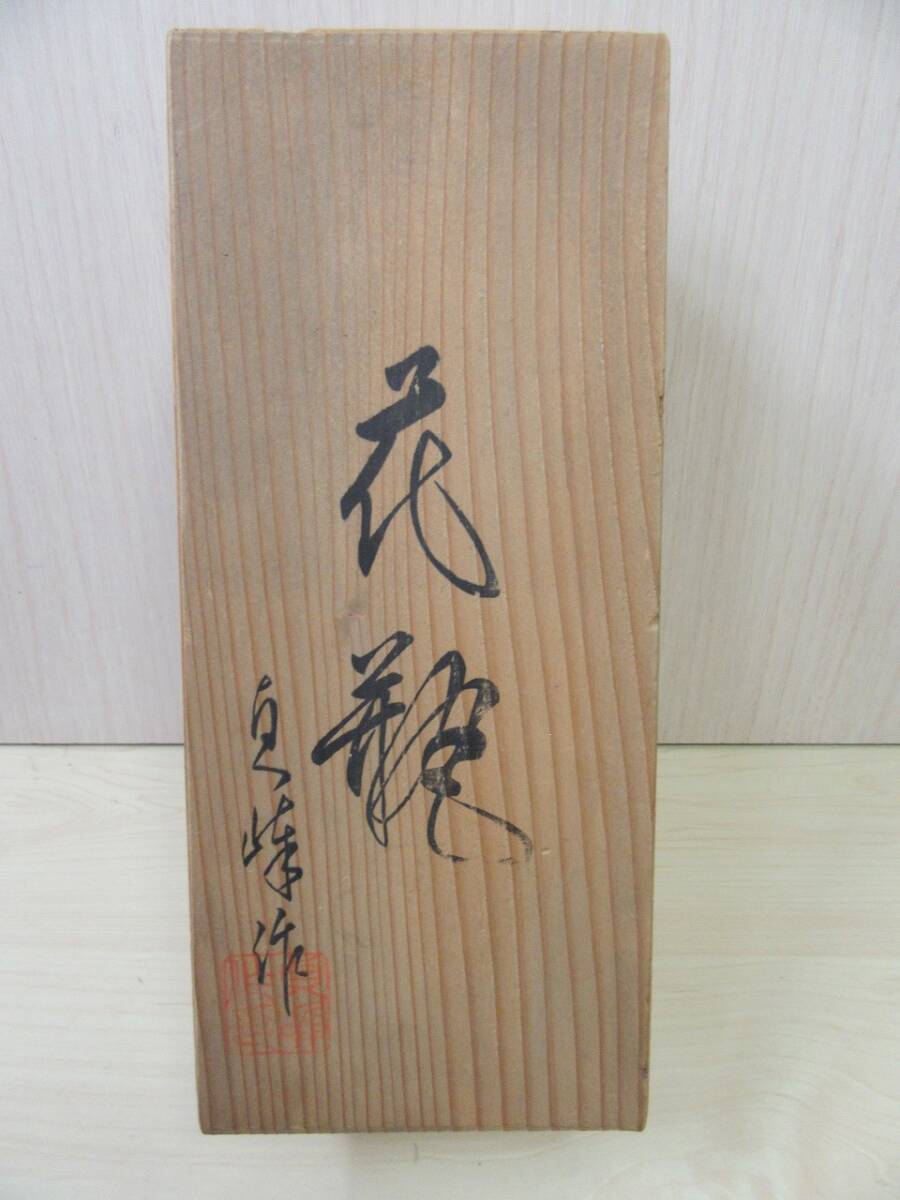 花瓶
真峰作